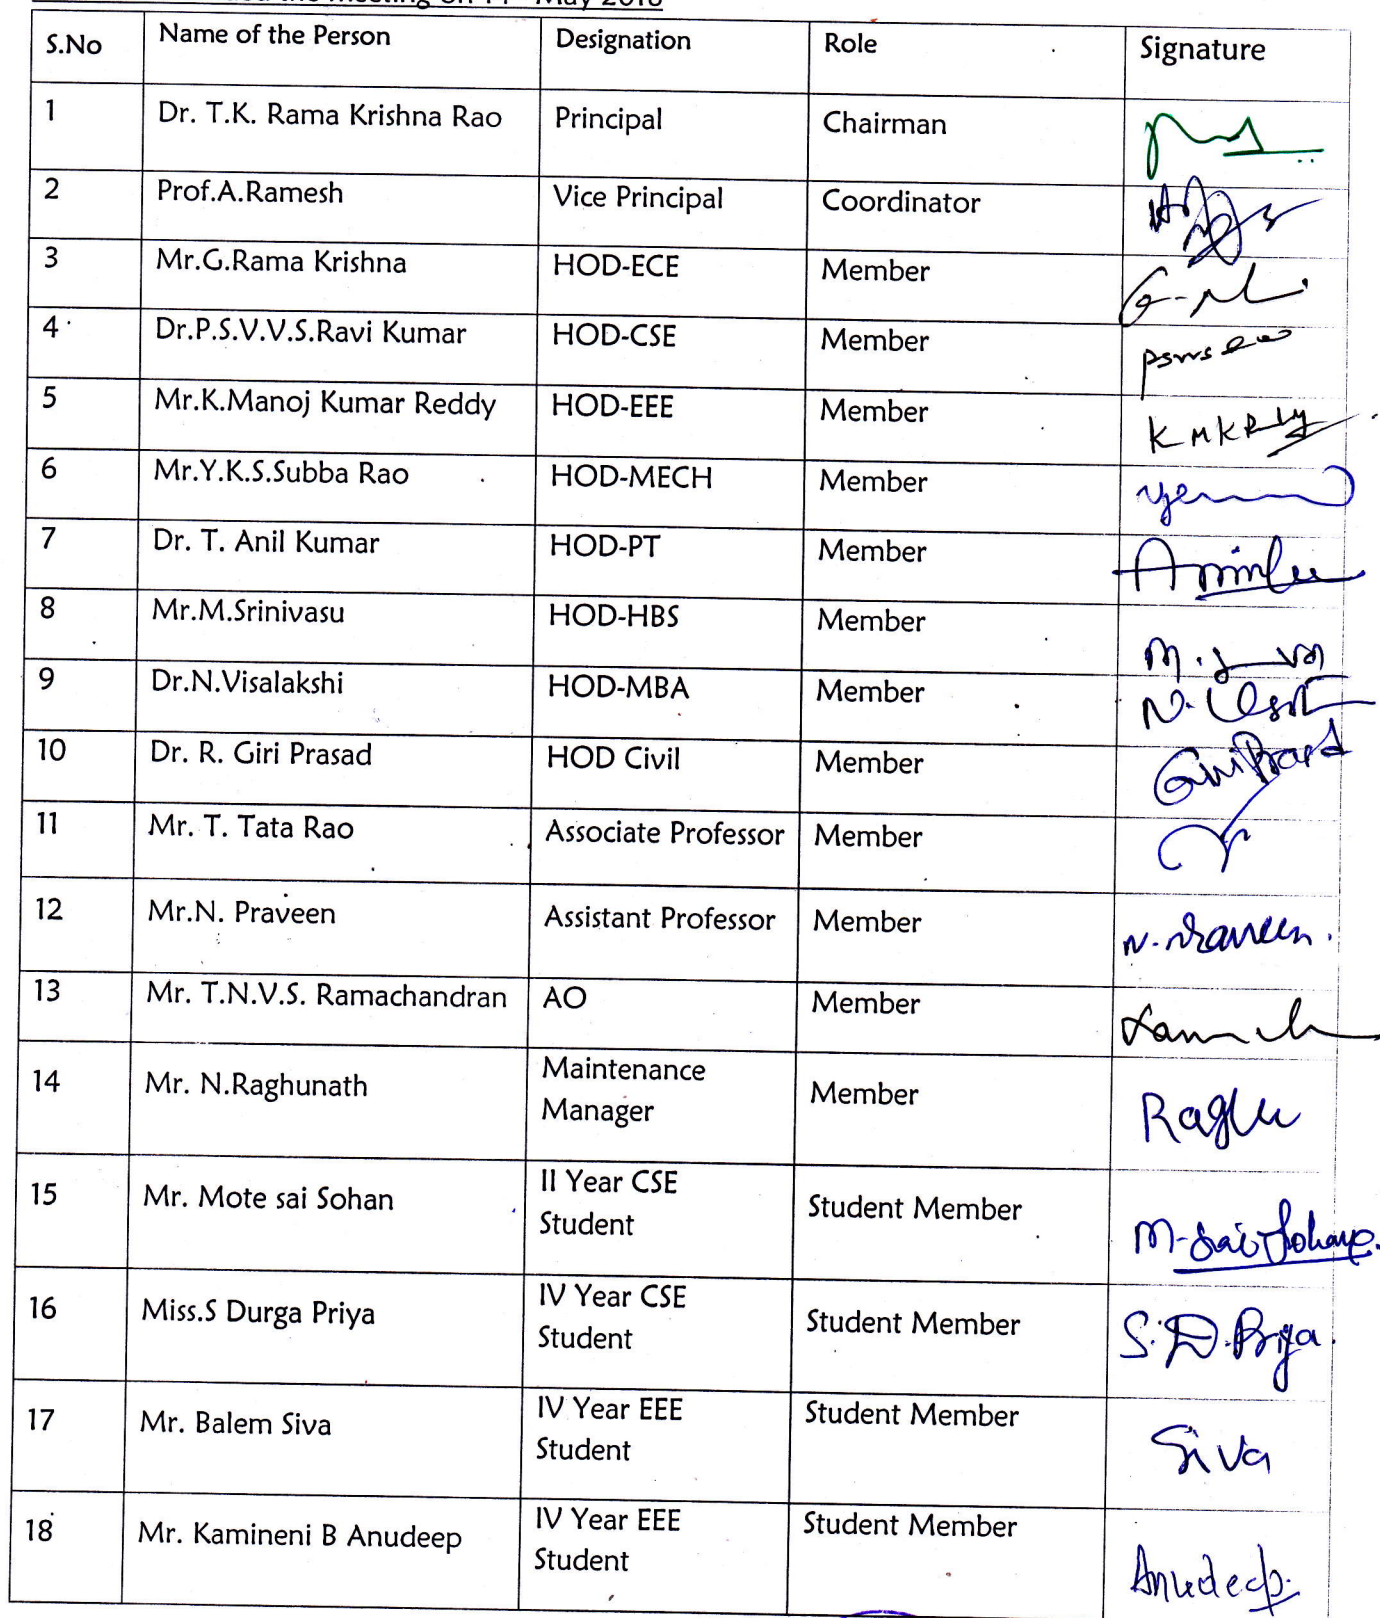 the meeting on 11th May 2018
S.No Name of the Person Designation Role Signature
1 Dr. T.K. Rama Krishna Rao Principal Chairman
2 Prof.A.Ramesh Vice Principal Coordinator
3 Mr.G.Rama Krishna HOD-ECE Member
4 Dr.P.S.V.V.S.Ravi Kumar HOD-CSE Member
5 Mr.K.Manoj Kumar Reddy HOD-EEE Member
6 Mr.Y.K.S.Subba Rao HOD-MECH Member
7 Dr. T. Anil Kumar HOD-PT Member
8 Mr.M.Srinivasu HOD-HBS Member
9 Dr.N.Visalakshi HOD-MBA Member
10 Dr. R. Giri Prasad HOD Civil Member
11 Mr. T. Tata Rao Associate Professor Member
12 Mr.N. Praveen Assistant Professor Member N. Praveen.
13 Mr. T.N.V.S. Ramachandran AO Member
14 Mr. N.Raghunath Maintenance
Manager Member Raghu
15 Mr. Mote sai Sohan II Year CSE
Student Student Member M. Sai Sohan.
16 Miss.S Durga Priya IV Year CSE
Student Student Member S.D.Priya.
17 Mr. Balem Siva IV Year EEE
Student Student Member Siva
18 Mr. Kamineni B Anudeep IV Year EEE
Student Student Member Anudeep.